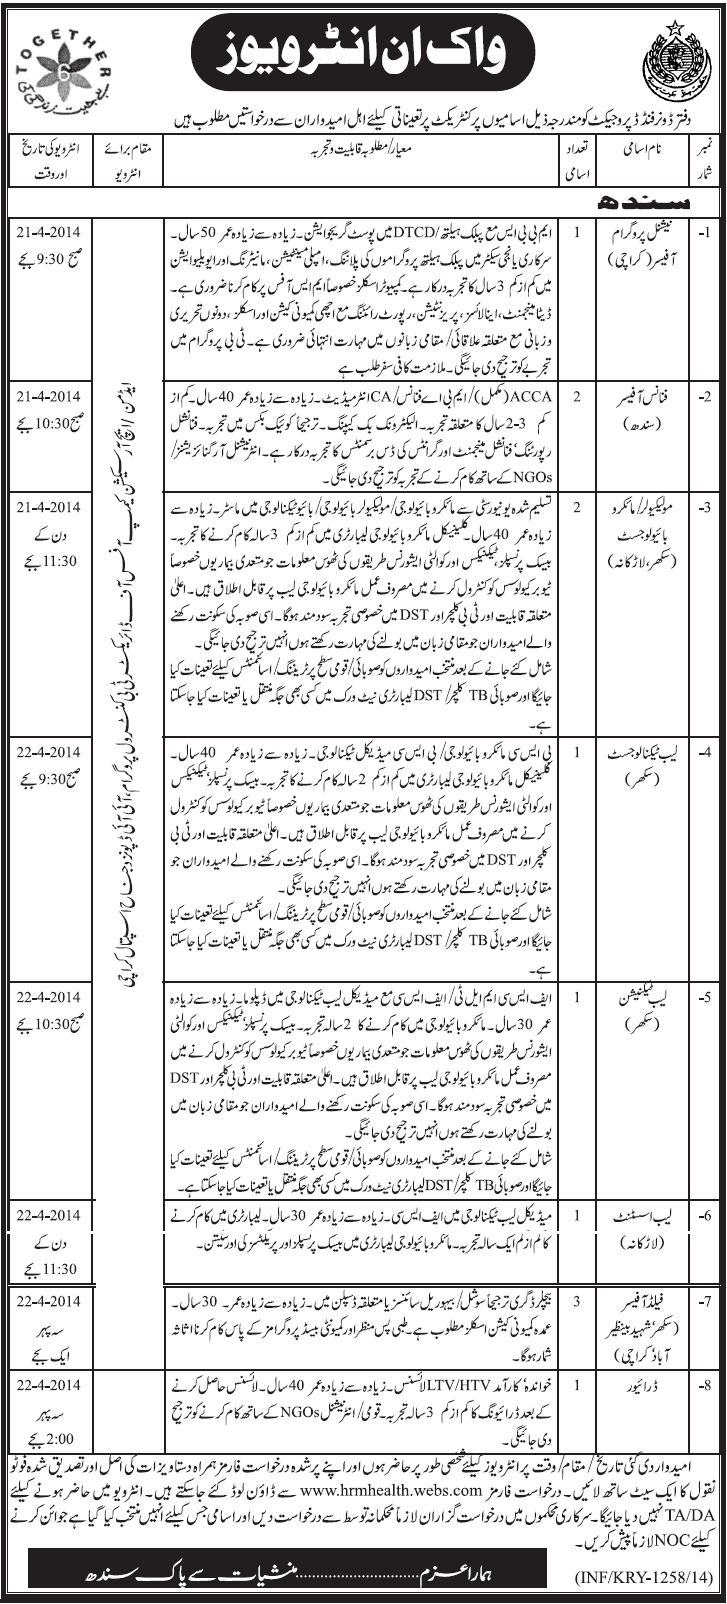 TOGETHER
6
واک ان انٹرویوز
دفتر ڈونر فنڈڈ پروجیکٹ کو مندرجہ ذیل اسامیوں پر کنٹریکٹ پر تعیناتی کیلئے اہل امیدواران سے درخواستیں مطلوب ہیں
نمبر شمار
نام اسامی
تعداد اسامی
معیار/مطلوبہ قابلیت و تجربہ
مقام برائے انٹرویو
انٹرویو کی تاریخ اور وقت
سندھ
1-
نیشنل پروگرام
آفیسر (کراچی)
1
ایم بی بی ایس مع پبلک ہیلتھ/DTCD میں پوسٹ گریجوایشن۔ زیادہ سے زیادہ عمر 50 سال۔
سرکاری یا نجی سیکٹر میں پبلک ہیلتھ پروگراموں کی پلاننگ، امپلی مینٹیشن، مانیٹرنگ اور ایویلیوایشن
میں کم از کم 3 سال کا تجربہ درکار ہے۔ کمپیوٹر اسکلز خصوصاً ایم ایس آفس پر کام کرنا ضروری ہے۔
ڈیٹا مینجمنٹ، اینالائسز، پریزنٹیشن، رپورٹ رائٹنگ مع اچھی کمیونی کیشن اور اسکلز، دونوں تحریری
و زبانی مع متعلقہ علاقائی/مقامی زبانوں میں مہارت انتہائی ضروری ہے۔ ٹی بی پروگرام میں
تجربے کو ترجیح دی جائیگی۔ ملازمت کافی سفر طلب ہے
21-4-2014
صبح 9:30 بجے
ایڈمن/ایچ آر سیکشن کیمپ آفس آف ڈائریکٹر ٹی بی کنٹرول پروگرام، آئی آئی ڈپوز جناح اسپتال کراچی
2-
فنانس آفیسر
(سندھ)
2
ACCA (مکمل)/ایم بی اے فنانس/CA انٹرمیڈیٹ۔ زیادہ سے زیادہ عمر 40 سال۔ کم از
کم 3-2 سال کا متعلقہ تجربہ۔ الیکٹرونک بک کیپنگ۔ ترجیحاً کوئیک بکس میں تجربہ۔ فنانشل
رپورٹنگ، فنانشل مینجمنٹ اور گرانٹس کی ڈس برسمنٹس کا تجربہ درکار ہے۔ انٹرنیشنل آرگنائزیشنز/
NGOs کے ساتھ کام کرنے کے تجربہ کو ترجیح دی جائیگی۔
21-4-2014
صبح 10:30 بجے
3-
مولیکیولر/مائکرو
بائیولوجسٹ
(سکھر، لاڑکانہ)
2
تسلیم شدہ یونیورسٹی سے مائکرو بائیولوجی/مولیکیولر بائیولوجی/بائیوٹیکنالوجی میں ماسٹر۔ زیادہ سے
زیادہ عمر 40 سال۔ کلینیکل مائکرو بائیولوجی لیبارٹری میں کم از کم 3 سالہ کام کرنے کا تجربہ۔
بیسک پرنسپلز، ٹیکنیکس اور کوالٹی ایشورنس طریقوں کی ٹھوس معلومات جو متعدی بیماریوں خصوصاً
ٹیوبرکیولوسس کو کنٹرول کرنے میں مصروف عمل مائکرو بائیولوجی لیب پر قابل اطلاق ہیں۔ اعلیٰ
متعلقہ قابلیت اور ٹی بی کلچر اور DST میں خصوصی تجربہ سودمند ہوگا۔ اسی صوبہ کی سکونت رکھنے
والے امیدواران جو مقامی زبان میں بولنے کی مہارت رکھتے ہوں انہیں ترجیح دی جائیگی۔
شامل کئے جانے کے بعد منتخب امیدواروں کو صوبائی/قومی سطح پر ٹریننگ/اسائنمنٹس کیلئے تعینات کیا
جائیگا اور صوبائی TB کلچر/DST لیبارٹری نیٹ ورک میں کسی بھی جگہ منتقل یا تعینات کیا جاسکتا
ہے۔
21-4-2014
دن کے
11:30 بجے
4-
لیب ٹیکنالوجسٹ
(سکھر)
1
بی ایس سی مائکرو بائیولوجی/بی ایس سی میڈیکل ٹیکنالوجی۔ زیادہ سے زیادہ عمر 40 سال۔
کلینیکل مائکرو بائیولوجی لیبارٹری میں کم از کم 2 سالہ کام کرنے کا تجربہ۔ بیسک پرنسپلز، ٹیکنیکس
اور کوالٹی ایشورنس طریقوں کی ٹھوس معلومات جو متعدی بیماریوں خصوصاً ٹیوبرکیولوسس کو کنٹرول
کرنے میں مصروف عمل مائکرو بائیولوجی لیب پر قابل اطلاق ہیں۔ اعلیٰ متعلقہ قابلیت اور ٹی بی
کلچر اور DST میں خصوصی تجربہ سودمند ہوگا۔ اسی صوبہ کی سکونت رکھنے والے امیدواران جو
مقامی زبان میں بولنے کی مہارت رکھتے ہوں انہیں ترجیح دی جائیگی۔
شامل کئے جانے کے بعد منتخب امیدواروں کو صوبائی/قومی سطح پر ٹریننگ/اسائنمنٹس کیلئے تعینات کیا
جائیگا اور صوبائی TB کلچر/DST لیبارٹری نیٹ ورک میں کسی بھی جگہ منتقل یا تعینات کیا جاسکتا
ہے۔
22-4-2014
صبح 9:30 بجے
5-
لیب ٹیکنیشن
(سکھر)
1
ایف ایس سی ایم ایل ٹی/ایف ایس سی مع میڈیکل لیب ٹیکنالوجی میں ڈپلوما۔ زیادہ سے زیادہ
عمر 30 سال۔ مائکرو بائیولوجی میں کام کرنے کا 2 سالہ تجربہ۔ بیسک پرنسپلز، ٹیکنیکس اور کوالٹی
ایشورنس طریقوں کی ٹھوس معلومات جو متعدی بیماریوں خصوصاً ٹیوبرکیولوسس کو کنٹرول کرنے میں
مصروف عمل مائکرو بائیولوجی لیب پر قابل اطلاق ہیں۔ اعلیٰ متعلقہ قابلیت اور ٹی بی کلچر اور DST
میں خصوصی تجربہ سودمند ہوگا۔ اسی صوبہ کی سکونت رکھنے والے امیدواران جو مقامی زبان میں
بولنے کی مہارت رکھتے ہوں انہیں ترجیح دی جائیگی۔
شامل کئے جانے کے بعد منتخب امیدواروں کو صوبائی/قومی سطح پر ٹریننگ/اسائنمنٹس کیلئے تعینات کیا
جائیگا اور صوبائی TB کلچر/DST لیبارٹری نیٹ ورک میں کسی بھی جگہ منتقل یا تعینات کیا جاسکتا ہے۔
22-4-2014
صبح 10:30 بجے
6-
لیب اسسٹنٹ
(لاڑکانہ)
1
میڈیکل لیب ٹیکنالوجی میں ایف ایس سی۔ زیادہ سے زیادہ عمر 30 سال۔ لیبارٹری میں کام کرنے
کا کم از کم ایک سالہ تجربہ۔ مائکرو بائیولوجی لیبارٹری میں بیسک پرنسپلز اور پریکٹسز کی اورسیشن۔
22-4-2014
دن کے
11:30 بجے
7-
فیلڈ آفیسر
(سکھر، شہید بینظیر
آباد، کراچی)
3
بیچلر ڈگری ترجیحاً سوشل/بیہوریل سائنسز یا متعلقہ ڈسپلن میں۔ زیادہ سے زیادہ عمر۔ 30 سال۔
عمدہ کمیونی کیشن اسکلز مطلوب ہے۔ طبی پس منظر اور کمیونٹی بیسڈ پروگرامز کے پاس کام کرنا اثاثہ
شمار ہوگا۔
22-4-2014
سہ پہر
ایک بجے
8-
ڈرائیور
1
خواندہ، کارآمد LTV/HTV لائسنس۔ زیادہ سے زیادہ عمر 40 سال۔ لائسنس حاصل کرنے
کے بعد ڈرائیونگ کا کم از کم 3 سالہ تجربہ۔ قومی/انٹرنیشنل NGOs کے ساتھ کام کرنے کو ترجیح
دی جائیگی۔
22-4-2014
سہ پہر
2:00 بجے
امیدوار دی گئی تاریخ/مقام/وقت پر انٹرویوز کیلئے شخصی طور پر حاضر ہوں اور اپنے پر شدہ درخواست فارمز ہمراہ دستاویزات کی اصل اور تصدیق شدہ فوٹو
نقول کا ایک سیٹ ساتھ لائیں۔ درخواست فارمز www.hrmhealth.webs.com سے ڈاؤن لوڈ کئے جاسکتے ہیں۔ انٹرویو میں حاضر ہونے کیلئے
TA/DA نہیں دیا جائیگا۔ سرکاری محکموں میں درخواست گزاران لازماً محکمانہ توسط سے درخواست دیں اور اسامی جس کیلئے انہیں منتخب کیا گیا ہے جوائن کرنے
کیلئے NOC لازماً پیش کریں۔
ہمارا عزم..............................منشیات سے پاک سندھ
(INF/KRY-1258/14)